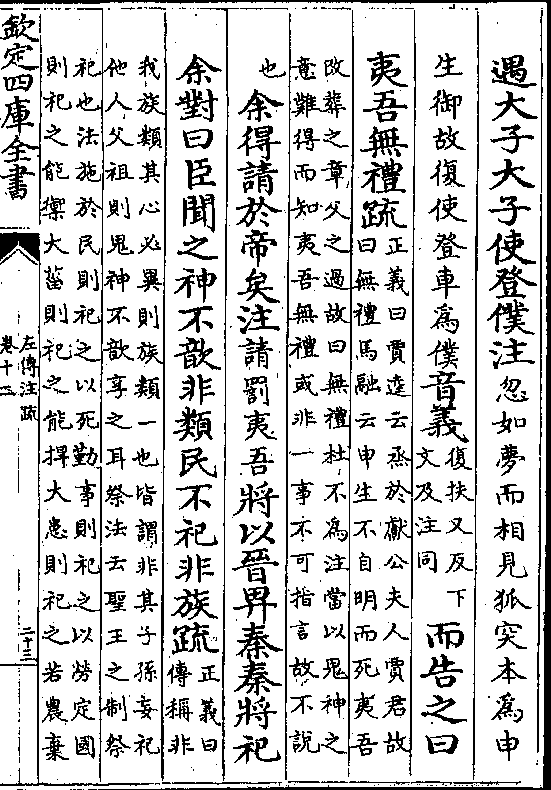 遇大子大子使登僕注忽如夢而相見狐突本為申
生御故復使登車為僕音義復扶又反下文及注同而告之曰
夷吾無禮疏正義曰賈逵云烝於獻公夫人賈君故
曰無禮馬融云申生不自明而死夷吾
改葬之章父之過故曰無禮杜不為注當以鬼神之
意難得而知夷吾無禮或非一事不可指言故不說
也余得請於帝矣注請罰夷吾將以晉畀秦秦將祀
余對曰臣聞之神不歆非類民不祀非族疏正義曰傳稱非
我族類其心必異則族類一也皆謂非其子孫妄祀
他人父祖則鬼神不歆享之耳祭法云聖王之制祭
祀也法施於民則祀之以死勤事則祀之以勞定國
則祀之能禦大菑則祀之能捍大患則祀之若農棄
欽定四庫全書
左傳注疏
卷十二
二十三